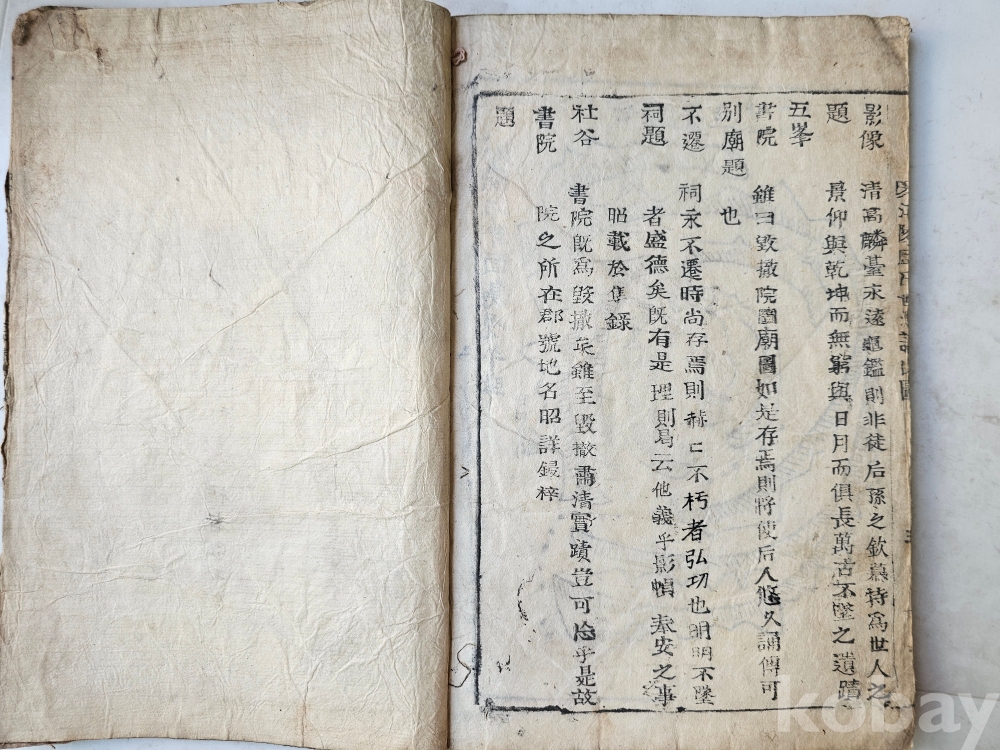 影像 清高麟臺永遠龜鑑則非徒后孫之欽慕特爲世人之
題 景仰與乾坤而無窮與日月而俱長萬古不墜之遺蹟
五峯
書院 雖曰毀撤院圖廟圖如是存焉則將使后人悠久誦傳可
別廟題 也
不遷 祠永不遷時尚存焉則赫〻不朽者弘功也明明不墜
祠題 者盛德矣旣有是理則曷云他義乎影幀 奉安之事
昭載於隻錄
社谷 書院旣爲毀撤矣雖至毀撤肅清實蹟豈可忽乎是故
書院 院之所在郡號地名昭詳鋟梓
題
kobay